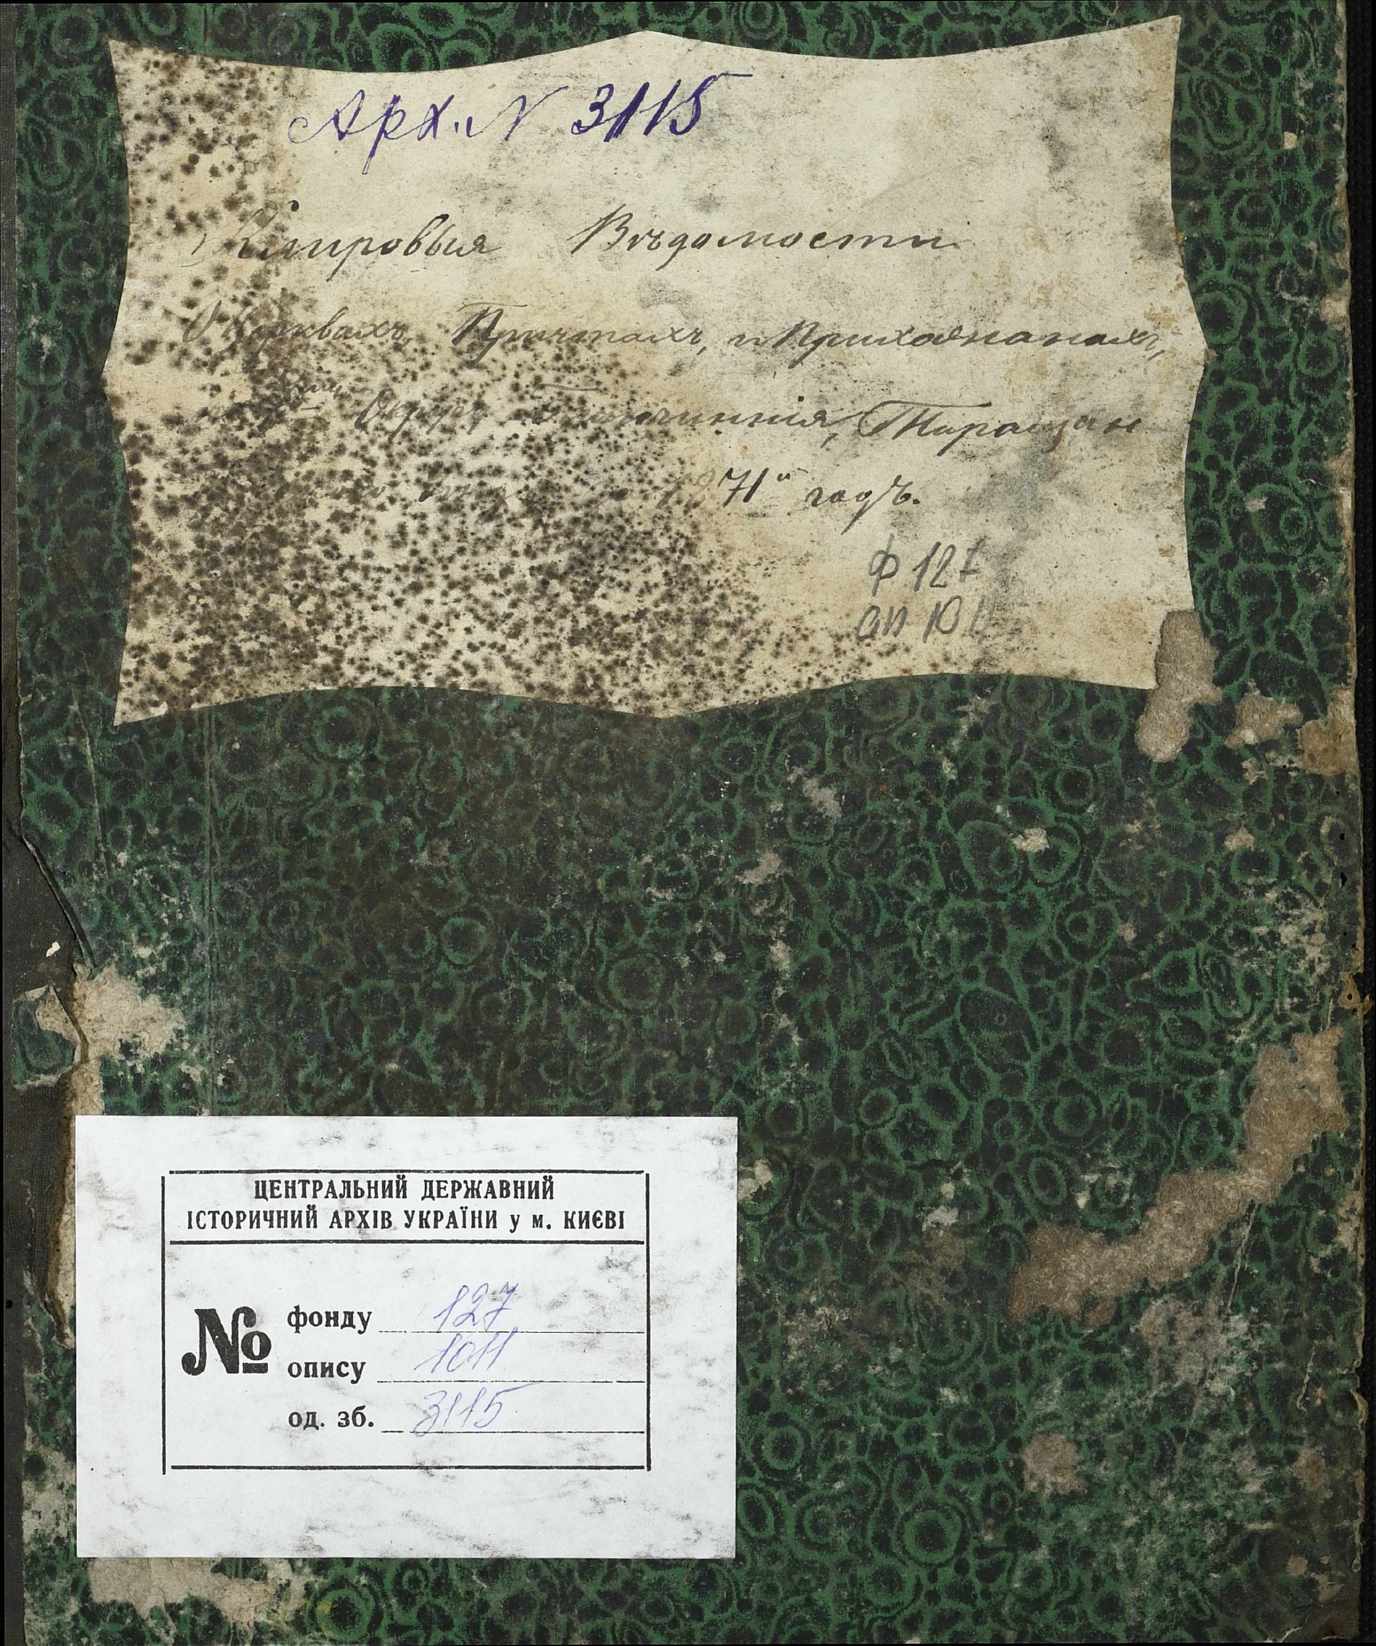 Арх. N 3115
Клировыя Вѣдомости
О Церквахъ, Причтахъ, и Прихожанахъ,
Округѣ Благочинія, Таращан
1871й годъ.
Ф 127
оп 101
ЦЕНТРАЛЬНИЙ ДЕРЖАВНИЙ
ІСТОРИЧНИЙ АРХІВ УКРАЇНИ у м. КИЄВІ
№
фонду 127
опису 1011
од. зб. 3115